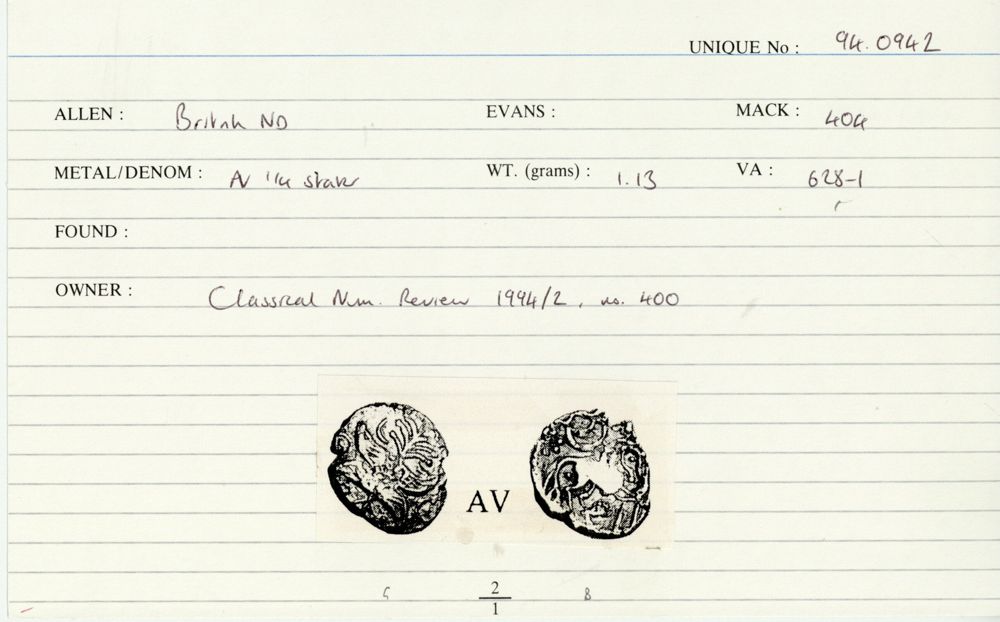 UNIQUE No : 94.0942
ALLEN : British ND EVANS : MACK : 404
METAL/DENOM : AV 1/4 stater WT. (grams) : 1.13 VA : 628-1
FOUND :
OWNER : Classical Num. Review 1994/2, no. 400
AV
2
1